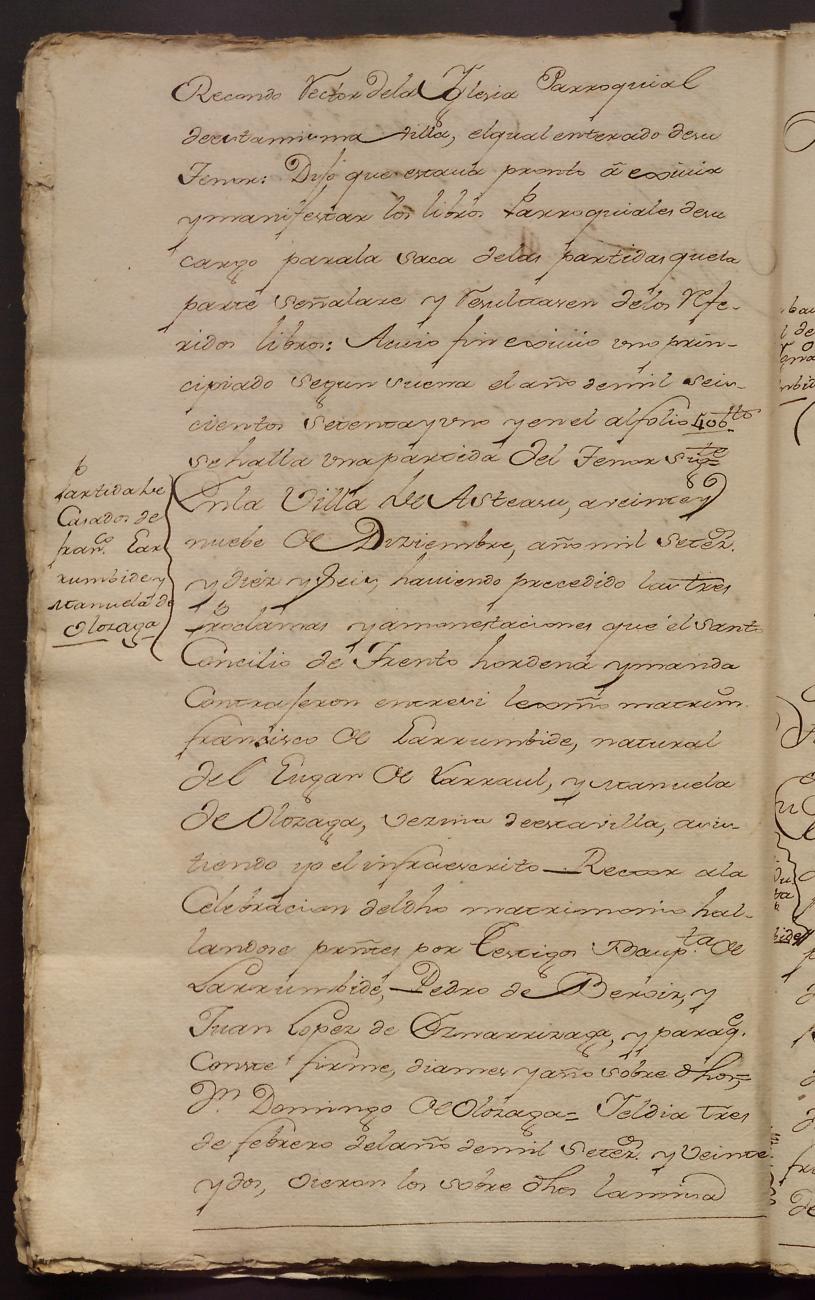 Recondo Rector dela Yglesia Parroquial
deestamisma villa, elqual enterado desu
Tenor: Dijo que estava pronto â exsivir
ymanifestar los libros Parroquiales desu
cargo parala saca delas partidas quela
parte señalare y resultasen delos Refe-
ridos libros: Acuio fin exsivio uno prin-
cipiado segun suena el año demil seis-
cientos setentayuno yenel alfolio 406 tto
sehalla unapartida del Tenor Sigte
Partida de
Casados de
Franco Lar
rumbide y
Manuela de
Olozaga
Enla Villa de Asteasu, aveintey
nuebe de Diziembre, año mil setez.
y diez y Seis, haviendo precedido las tres
Proclamas yamonestaciones que el Santo
Concilio de Trento hordena ymanda
Contrajeron entresi lexmo matrim.
francisco de Larrumbide, natural
del Lugar de Larraul, y Manuela
de Olozaga, vezina deesta villa, asis-
tiendo yo el infraescrito Rector ala
Celebracion deldho matrimonio hal-
landose prntes por testigos Baup.ta de
Larrumbide, Pedro de Beroiz, y
Juan Lopez de Oznarrizaga, y paraq.
Conste firme, diames yaño sobre dhos,
Dn Domingo de Olozaga= Yeldia tres
de febrero delaño demil setez. y veinte
y dos, oieron los sobre dhos lamissa